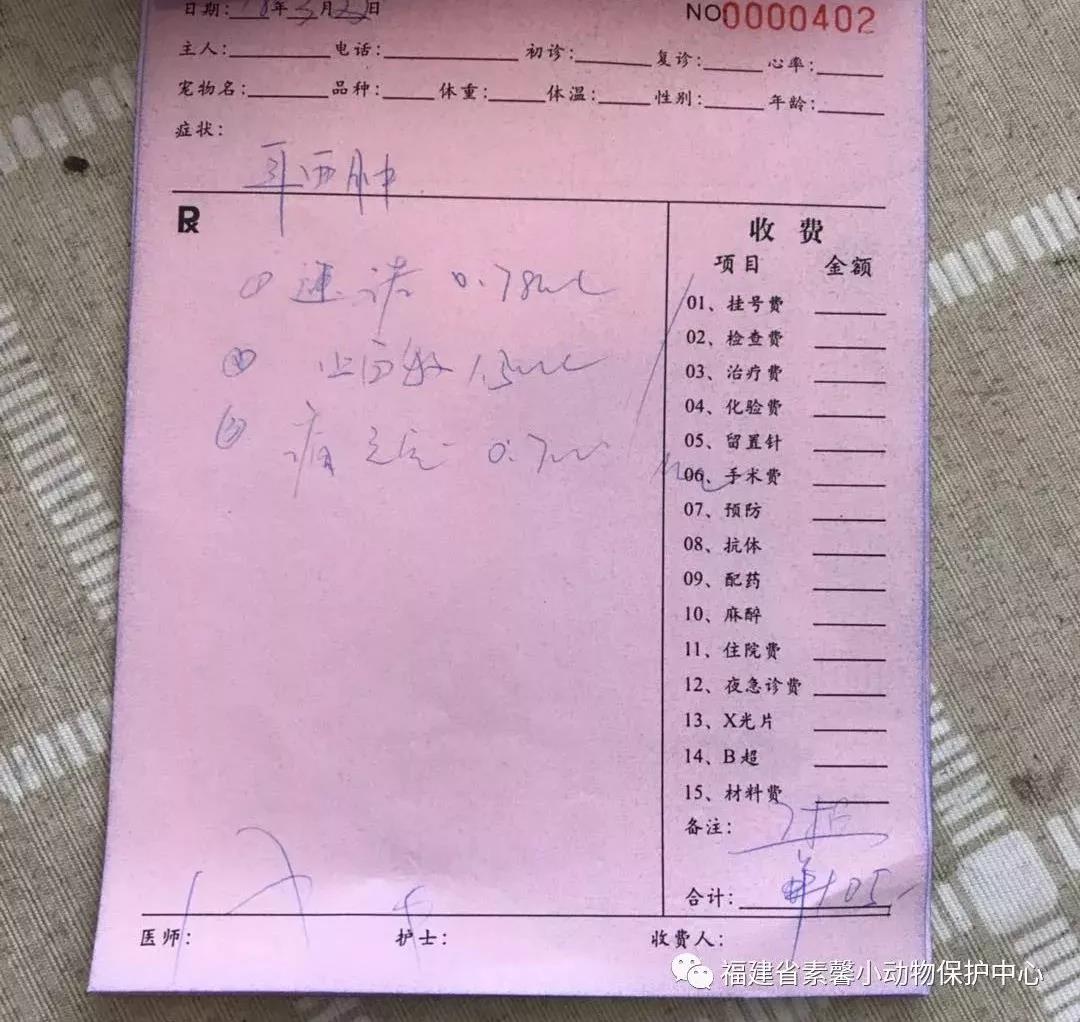 日期: 18年3月22日 NO0000402
主人: 电话: 初诊: 复诊: 心率:
宠物名: 品种: 体重: 体温: 性别: 年龄:
症状:
耳血肿
Rx
① 速诺 0.78ml
② 止血敏 1.5ml
③ 痛立定 0.7ml
收费
项目 金额
01、挂号费
02、检查费
03、治疗费
04、化验费
05、留置针
06、手术费
07、预防
08、抗体
09、配药
10、麻醉
11、住院费
12、夜急诊费
13、X光片
14、B超
15、材料费
备注:
合计: 105
医师: 护士: 收费人:
福建省素馨小动物保护中心